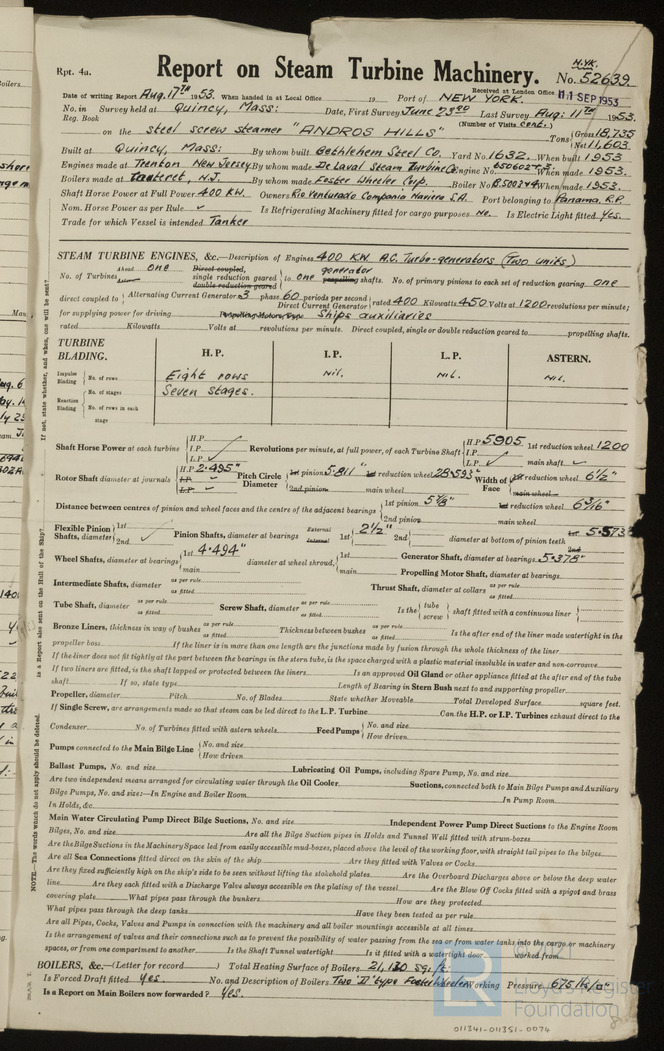 Rpt. 4a.
Report on Steam Turbine Machinery.
N.YK.
No. 52639
Received at London Office 11 SEP 1953
Date of writing Report Aug. 17TH 1953. When handed in at Local Office 19 Port of NEW YORK.
No. in Reg. Book Survey held at Quincy, Mass: Date, First Survey June 23RD Last Survey Aug: 11TH 1953.
(Number of Visits Cont.)
on the steel screw steamer "ANDROS HILLS" Tons {Gross 18,735 Net 11,603
Built at Quincy, Mass: By whom built Bethlehem Steel Co. Yard No. 1632. When built 1953
Engines made at Trenton New Jersey By whom made De Laval Steam Turbine Co. Engine No. When made 1953.
Boilers made at Carteret, N.J. By whom made Foster Wheeler Corp. Boiler No. When made 1953.
Shaft Horse Power at Full Power 400 KW. Owners Rio Venturado Compania Naviera S.A. Port belonging to Panama. R.P.
Nom. Horse Power as per Rule ✓ Is Refrigerating Machinery fitted for cargo purposes No. Is Electric Light fitted Yes.
Trade for which Vessel is intended Tanker
STEAM TURBINE ENGINES, &c.—Description of Engines 400 KW A.C. Turbo-generators (Two units)
No. of Turbines Ahead one Direct coupled, single reduction geared double reduction geared} to one generator propelling shafts. No. of primary pinions to each set of reduction gearing one
direct coupled to {Alternating Current Generator 3 phase 60 periods per second Direct Current Generator} rated 400 Kilowatts 450 Volts at 1200 revolutions per minute;
for supplying power for driving Propelling Motors, Type Ships auxiliaries
rated Kilowatts Volts at revolutions per minute. Direct coupled, single or double reduction geared to propelling shafts.
TURBINE BLADING. H.P. I.P. L.P. ASTERN.
Impulse Blading {No. of rows Eight rows Nil. Nil. Nil.
Reaction Blading {No. of stages Seven stages.
No. of rows in each stage
Shaft Horse Power at each turbine {H.P. I.P. L.P. ✓ Revolutions per minute, at full power, of each Turbine Shaft {H.P. 5905 I.P. L.P. ✓ 1st reduction wheel 1200 main shaft ✓
Rotor Shaft diameter at journals {H.P. 2.495" I.P. ✓ L.P. ✓ Pitch Circle Diameter {1st pinion 5.811" 2nd pinion 1st reduction wheel 28.593 main wheel Width of Face {1st reduction wheel 6½" main wheel
Distance between centres of pinion and wheel faces and the centre of the adjacent bearings {1st pinion 5⅞" 2nd pinion 1st reduction wheel 6 3/16" main wheel
Flexible Pinion Shafts, diameter {1st 2nd ✓ Pinion Shafts, diameter at bearings External Internal {1st 2½" 2nd diameter at bottom of pinion teeth {1st 5.573" 2nd
Wheel Shafts, diameter at bearings {1st 4.494" main diameter at wheel shroud, {1st main Generator Shaft, diameter at bearings 5.378"
Propelling Motor Shaft, diameter at bearings
Intermediate Shafts, diameter as per rule as fitted Thrust Shaft, diameter at collars as per rule as fitted
Tube Shaft, diameter as per rule as fitted Screw Shaft, diameter as per rule as fitted Is the {tube screw} shaft fitted with a continuous liner {
Bronze Liners, thickness in way of bushes as per rule as fitted Thickness between bushes as per rule as fitted Is the after end of the liner made watertight in the
propeller boss If the liner is in more than one length are the junctions made by fusion through the whole thickness of the liner
If the liner does not fit tightly at the part between the bearings in the stern tube, is the space charged with a plastic material insoluble in water and non-corrosive
If two liners are fitted, is the shaft lapped or protected between the liners Is an approved Oil Gland or other appliance fitted at the after end of the tube
shaft If so, state type Length of Bearing in Stern Bush next to and supporting propeller
Propeller, diameter Pitch No. of Blades State whether Moveable Total Developed Surface square feet.
If Single Screw, are arrangements made so that steam can be led direct to the L.P. Turbine Can the H.P. or I.P. Turbines exhaust direct to the
Condenser No. of Turbines fitted with astern wheels Feed Pumps {No. and size How driven
Pumps connected to the Main Bilge Line {No. and size How driven
Ballast Pumps, No. and size Lubricating Oil Pumps, including Spare Pump, No. and size
Are two independent means arranged for circulating water through the Oil Cooler Suctions, connected both to Main Bilge Pumps and Auxiliary
Bilge Pumps, No. and size:—In Engine and Boiler Room In Pump Room
In Holds, &c.
Main Water Circulating Pump Direct Bilge Suctions, No. and size Independent Power Pump Direct Suctions to the Engine Room
Bilges, No. and size Are all the Bilge Suction pipes in Holds and Tunnel Well fitted with strum-boxes
Are the Bilge Suctions in the Machinery Space led from easily accessible mud-boxes, placed above the level of the working floor, with straight tail pipes to the bilges
Are all Sea Connections fitted direct on the skin of the ship Are they fitted with Valves or Cocks
Are they fixed sufficiently high on the ship's side to be seen without lifting the stokehold plates Are the Overboard Discharges above or below the deep water
line Are they each fitted with a Discharge Valve always accessible on the plating of the vessel Are the Blow Off Cocks fitted with a spigot and brass
covering plate What pipes pass through the bunkers How are they protected
What pipes pass through the deep tanks Have they been tested as per rule
Are all Pipes, Cocks, Valves and Pumps in connection with the machinery and all boiler mountings accessible at all times
Is the arrangement of valves and their connections such as to prevent the possibility of water passing from the sea or from water tanks into the cargo or machinery
spaces, or from one compartment to another Is the Shaft Tunnel watertight Is it fitted with a watertight door worked from
BOILERS, &c.—(Letter for record ) Total Heating Surface of Boilers 21,130 sq. ft.
Is Forced Draft fitted Yes No. and Description of Boilers Two "D" type Foster Wheeler Working Pressure 675 lb/□"
Is a Report on Main Boilers now forwarded? Yes.
NOTE—The words which do not apply should be deleted.
Is a Report also sent on the Hull of the Ship?
If not, state whether, and when, one will be sent?
© 2021
LR
Lloyd's Register
Foundation
011341-011351-0074